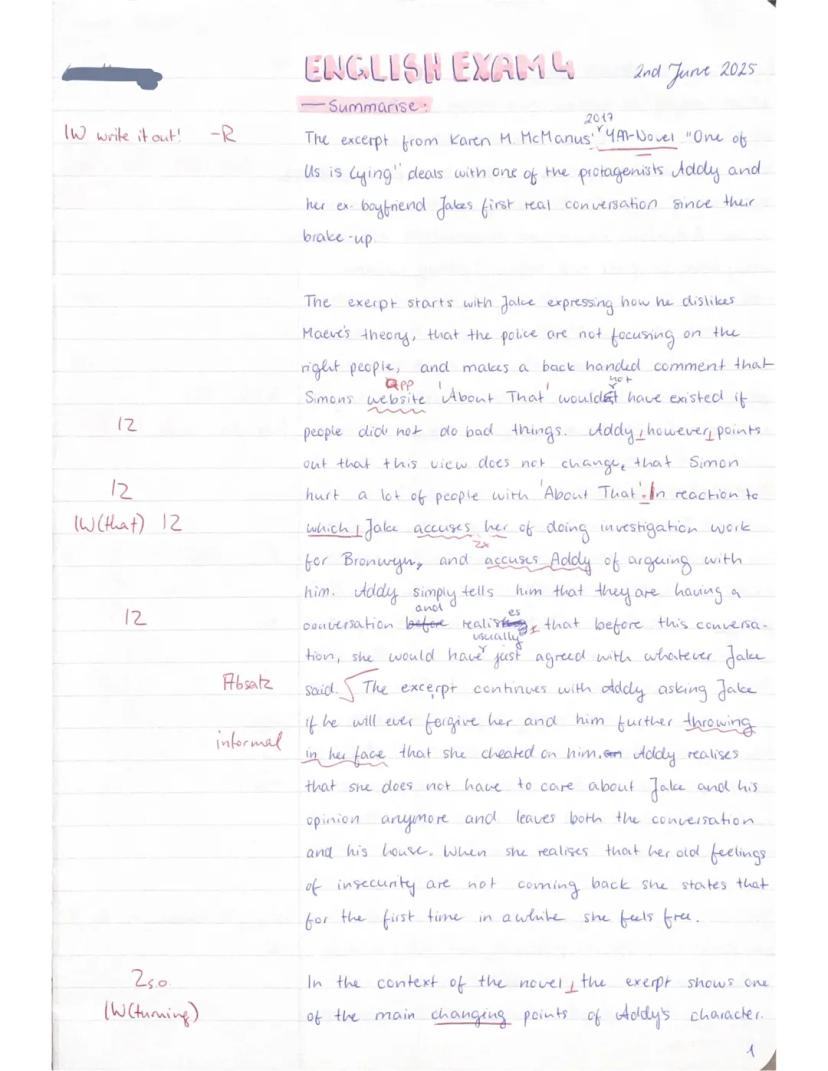 ENGLISH EXAM 4
2nd June 2025
— Summarise:
2017
IW write it out! -R
The excerpt from Karen M. McManus' YAL-Novel "One of
Us is Lying" deals with one of the protagenists Addy and
her ex-boyfriend Jakes first real conversation since their
brake-up.
The exerpt starts with Jake expressing how he dislikes
Maeve's theory, that the police are not focusing on the
right people, and makes a back handed comment that
App not
Simons website 'About That' would have existed if
IZ
people did not do bad things. Addy, however, points
out that this view does not change, that Simon
IZ
hurt a lot of people with 'About That'. In reaction to
IW(that) IZ
which, Jake accuses her of doing investigation work
2x
for Bronwyn, and accuses Addy of argeuing with
him. Addy simply tells him that they are having a
and es
IZ
conversation before realises, that before this conversa-
usually
tion, she would have just agreed with whatever Jake
Absatz
said. The excerpt continues with Addy asking Jake
if he will ever forgive her and him further throwing
informal
in her face that she cheated on him. Addy realises
that she does not have to care about Jake and his
opinion anymore and leaves both the conversation
and his house. When she realises that her old feelings
of insecurity are not coming back she states that
for the first time in awhile she feels free.
Z s.o.
In the context of the novel, the exerpt shows one
IW(turning)
of the main changing points of Addy's character.
1